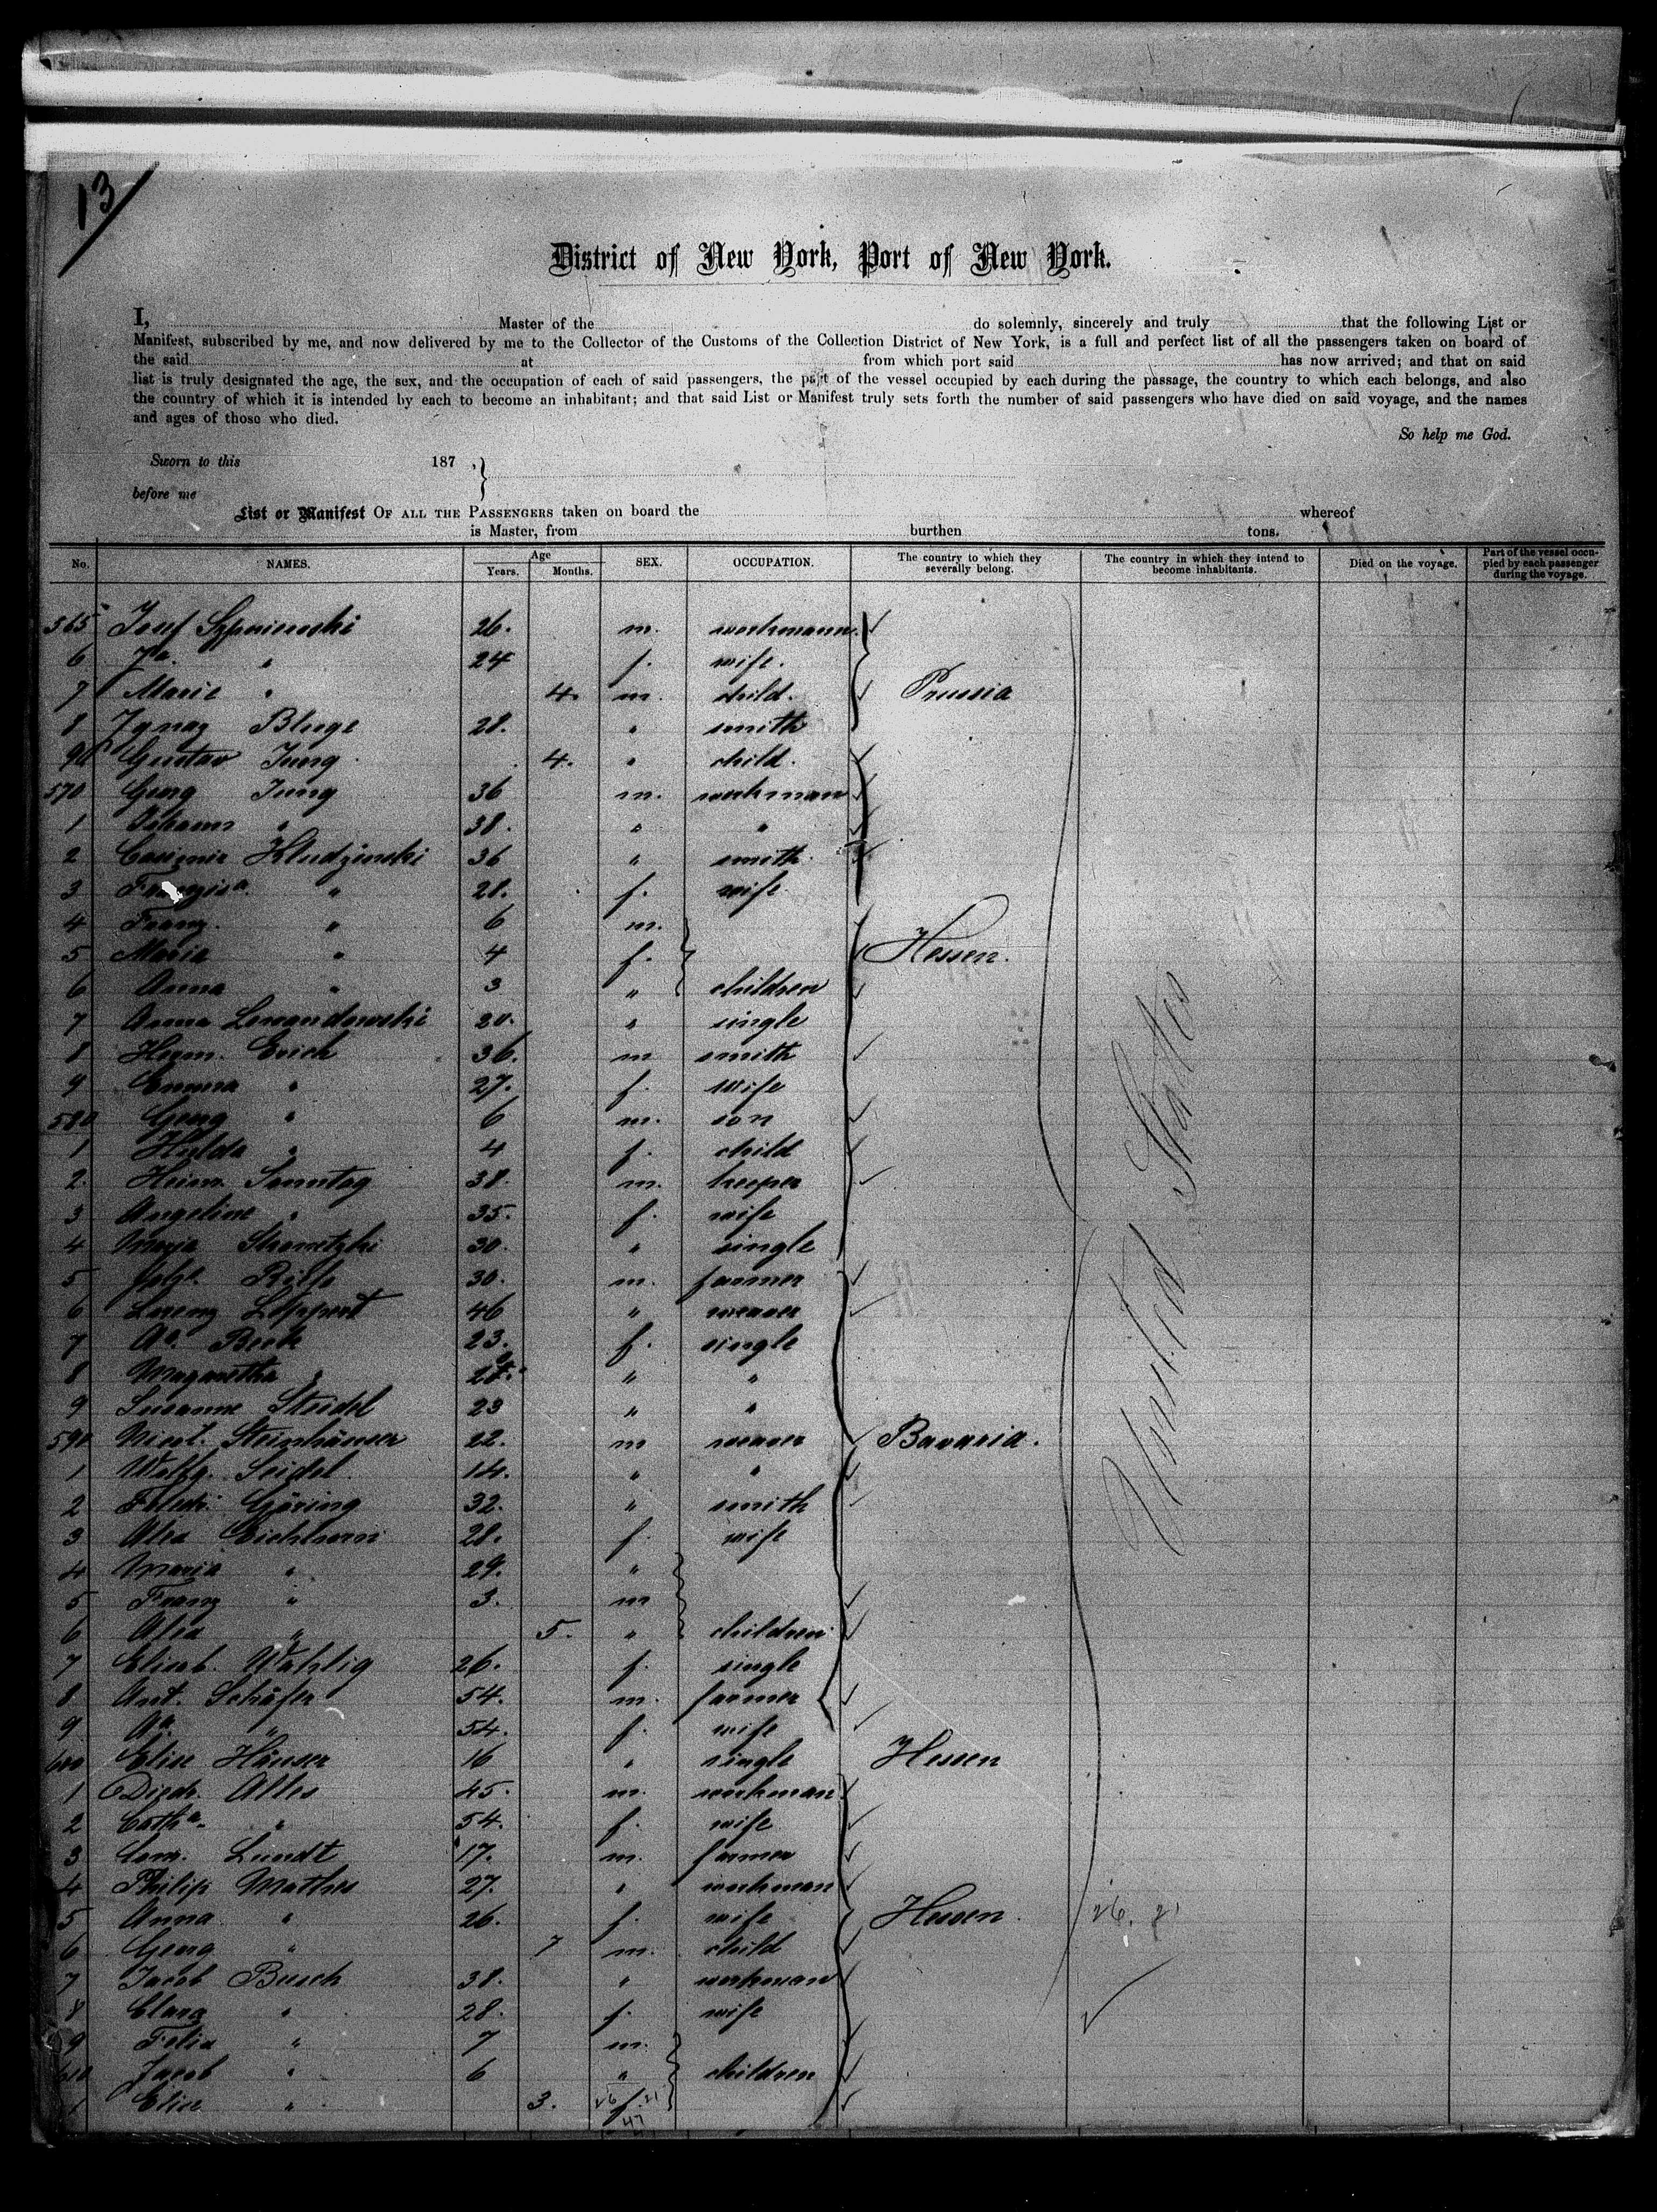 13
District of New York, Port of New York.
I, Master of the do solemnly, sincerely and truly that the following List or
Manifest, subscribed by me, and now delivered by me to the Collector of the Customs of the Collection District of New York, is a full and perfect list of all the passengers taken on board of
the said at from which port said has now arrived; and that on said
list is truly designated the age, the sex, and the occupation of each of said passengers, the part of the vessel occupied by each during the passage, the country to which each belongs, and also
the country of which it is intended by each to become an inhabitant; and that said List or Manifest truly sets forth the number of said passengers who have died on said voyage, and the names
and ages of those who died.
So help me God.
Sworn to this 187 ,
before me
List or Manifest OF ALL THE PASSENGERS taken on board the whereof
is Master, from burthen tons.
No. NAMES. Age Years. Months. SEX. OCCUPATION. The country to which they severally belong. The country in which they intend to become inhabitants. Died on the voyage. Part of the vessel occupied by each passenger during the voyage.
565 Josef 26. m. workmann
6 " 24 f. wife.
7 Marie " 4. m. child. Prussia
8 Ignaz Bluge 28. " smith
9 Gustav Jung 4. " child.
570 Georg Jung 36 m. workman
1 Johann " 38. " "
2 Casimir Kludzinski 36 " smith
3 " 28. f. wife
4 Franz. " 6 m.
5 Maria " 4 f. Hessen.
6 Anna " 3 " children
7 Anna Lewandowski 20. " single
8 Herm. Erich 36. m smith
9 Emma " 27. f. wife
580 Georg " 6 m. son
1 Hulda " 4 f. child
2. Heinr. Sonntag 38. m. keeper
3 Angeline " 35. f. wife
4 Maria 30. " single
5 30. m. farmer
6 Lorenz 46 " weaver
7 Aa. Beck 23. f. single
8 Margaretha " " "
9 Susanne Steidel 23 " "
590 Steinhäuser 22. m weaver Bavaria.
1 Wolfg. Seidel 14. " "
2 Göring 32. " smith
3 Eichhorn 28. f. wife
4 Maria " 29. "
5 Franz " 3. m
6 " 5. " children
7 Elisab. Wahlig 26. f. single
8 Ant. Schäfer 54. m. farmer
9 Aa. " 54. f. wife
600 Elise Häuser 16 " single Hessen
1 Diedr. Alles 45. m. workman
2 Catha. " 54. f. wife
3 Lundt 17. m. farmer
4 Philip Mathes 27. " workman
5 Anna " 26. f. wife Hessen. 26. 21
6 Georg " 7 m. child
7 Jacob Busch 38. " workman
8 Clara " 28. f. wife
9 Felix " 7 m.
610 Jacob " 6 " children
1 Elise " 3. f.
26 21
47
United States